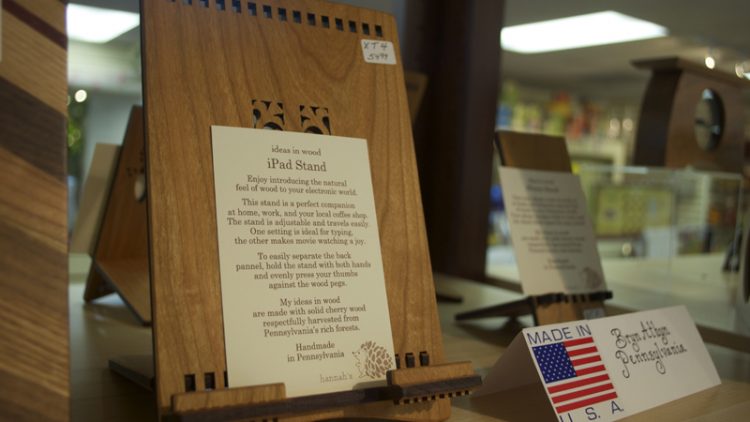 XT4
54.99
ideas in wood
iPad Stand
Enjoy introducing the natural
feel of wood to your electronic world.
This stand is a perfect companion
at home, work, and your local coffee shop.
The stand is adjustable and travels easily.
One setting is ideal for typing,
the other makes movie watching a joy.
To easily separate the back
pannel, hold the stand with both hands
and evenly press your thumbs
against the wood pegs.
My ideas in wood
are made with solid cherry wood
respectfully harvested from
Pennsylvania's rich forests.
Handmade
in Pennsylvania
hannah's
MADE IN
U.S.A.
Bryn Athyn
Pennsylvania